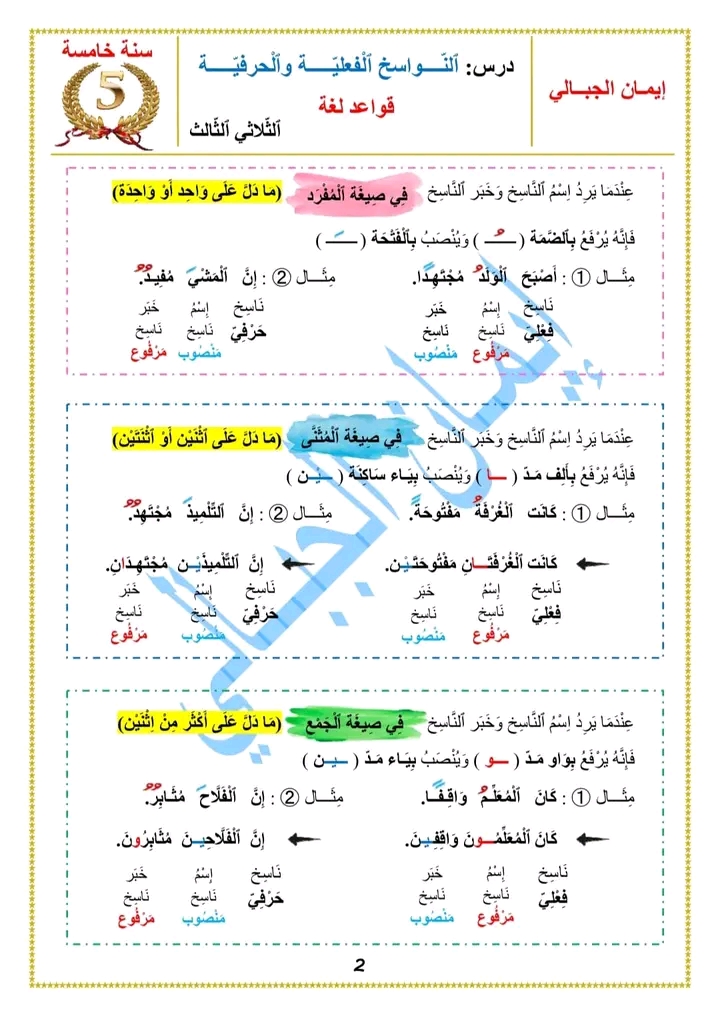 سنة خامسة
5
درس: ٱلنّـــواسخ ٱلْفعليّــــة وٱلْحرفيّـــة
قواعد لغة
ٱلثّلاثي ٱلثّالث
إيمـان الجبـالي
عِنْدَمَا يَرِدُ اِسْمُ ٱلنَّاسِخ وَخَبَر ٱلنَّاسِخ فِي صِيغَة ٱلْمُفْرَد (مَا دَلَّ عَلَى وَاحِد أَوْ وَاحِدَة)
فَإِنَّهُ يُرْفَعُ بِٱلضَّمَّة ( ـــُـــ ) وَيُنْصَبُ بِٱلْفَتْحَة ( ـــَـــ )
مِثَـــال ① : أَصْبَحَ ٱلْوَلَدُ مُجْتَهِدًا. مِثَـــال ② : إِنَّ ٱلْمَشْيَ مُفِيـدٌ.
نَاسِخ اِسْمُ خَبَر نَاسِخ اِسْمُ خَبَر
فِعْلِيّ نَاسِخ نَاسِخ حَرْفِيّ نَاسِخ نَاسِخ
مَرْفُوع مَنْصُوب مَنْصُوب مَرْفُوع
عِنْدَمَا يَرِدُ اِسْمُ ٱلنَّاسِخ وَخَبَر ٱلنَّاسِخ فِي صِيغَة ٱلْمُثَنَّى (مَا دَلَّ عَلَى ٱثْنَيْن أَوْ ٱثْنَتَيْن)
فَإِنَّهُ يُرْفَعُ بِأَلِف مَـدّ ( ــا ) وَيُنْصَبُ بِيَـاء سَاكِنَة ( ــيْـن )
مِثَـــال ① : كَانَت ٱلْغُرْفَةُ مَفْتُوحَةً. مِثَـــال ② : إِنَّ ٱلتِّلْمِيذَ مُجْتَهِدٌ.
كَانَت ٱلْغُرْفَتَـــانِ مَفْتُوحَتَـيْـن. إِنَّ ٱلتِّلْمِيذَيْـن مُجْتَهِـدَانِ.
نَاسِخ اِسْمُ خَبَر نَاسِخ اِسْمُ خَبَر
فِعْلِيّ نَاسِخ نَاسِخ حَرْفِيّ نَاسِخ نَاسِخ
مَرْفُوع مَنْصُوب مَنْصُوب مَرْفُوع
عِنْدَمَا يَرِدُ اِسْمُ ٱلنَّاسِخ وَخَبَر ٱلنَّاسِخ فِي صِيغَة ٱلْجَمْع (مَا دَلَّ عَلَى أَكْثَر مِنْ اِثْنَيْن)
فَإِنَّهُ يُرْفَعُ بِوَاو مَـدّ ( ـــو ) وَيُنْصَبُ بِيَـاء مَـدّ ( ــيـن )
مِثَـــال ① : كَانَ ٱلْمُعَلِّـمُ وَاقِـفًـا. مِثَـــال ② : إِنَّ ٱلْفَلَّاحَ مُثَـابِرٌ.
كَانَ ٱلْمُعَلِّمُـــونَ وَاقِفِـيـنَ. إِنَّ ٱلْفَلَّاحِيـنَ مُثَابِرُونَ.
نَاسِخ اِسْمُ خَبَر نَاسِخ اِسْمُ خَبَر
فِعْلِيّ نَاسِخ نَاسِخ حَرْفِيّ نَاسِخ نَاسِخ
مَرْفُوع مَنْصُوب مَنْصُوب مَرْفُوع
إيمان الجبالي
2